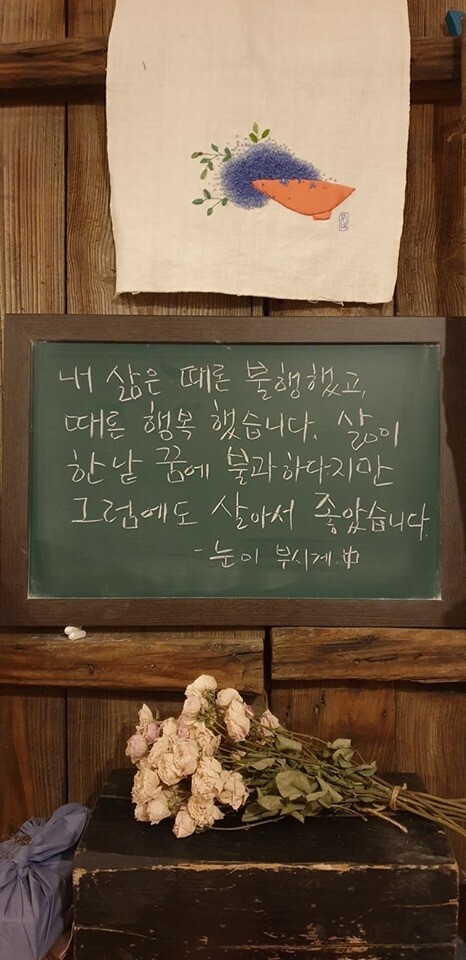 내 삶은 때론 불행했고,
때론 행복 했습니다. 삶이
한낱 꿈에 불과하다지만
그럼에도 살아서 좋았습니다.
- 눈이 부시게..中